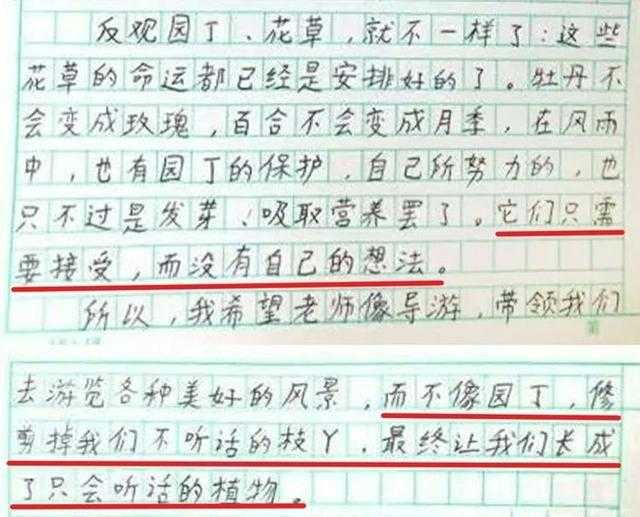 反观园丁、花草，就不一样了：这些
花草的命运都已经是安排好的了。牡丹不
会变成玫瑰，百合不会变成月季，在风雨
中，也有园丁的保护，自己所努力的，也
只不过是发芽、吸取营养罢了。它们只需
要接受，而没有自己的想法。
所以，我希望老师像导游，带领我们
第
去游览各种美好的风景，而不像园丁，修
剪掉我们不听话的枝丫，最终让我们长成
了只会听话的植物。